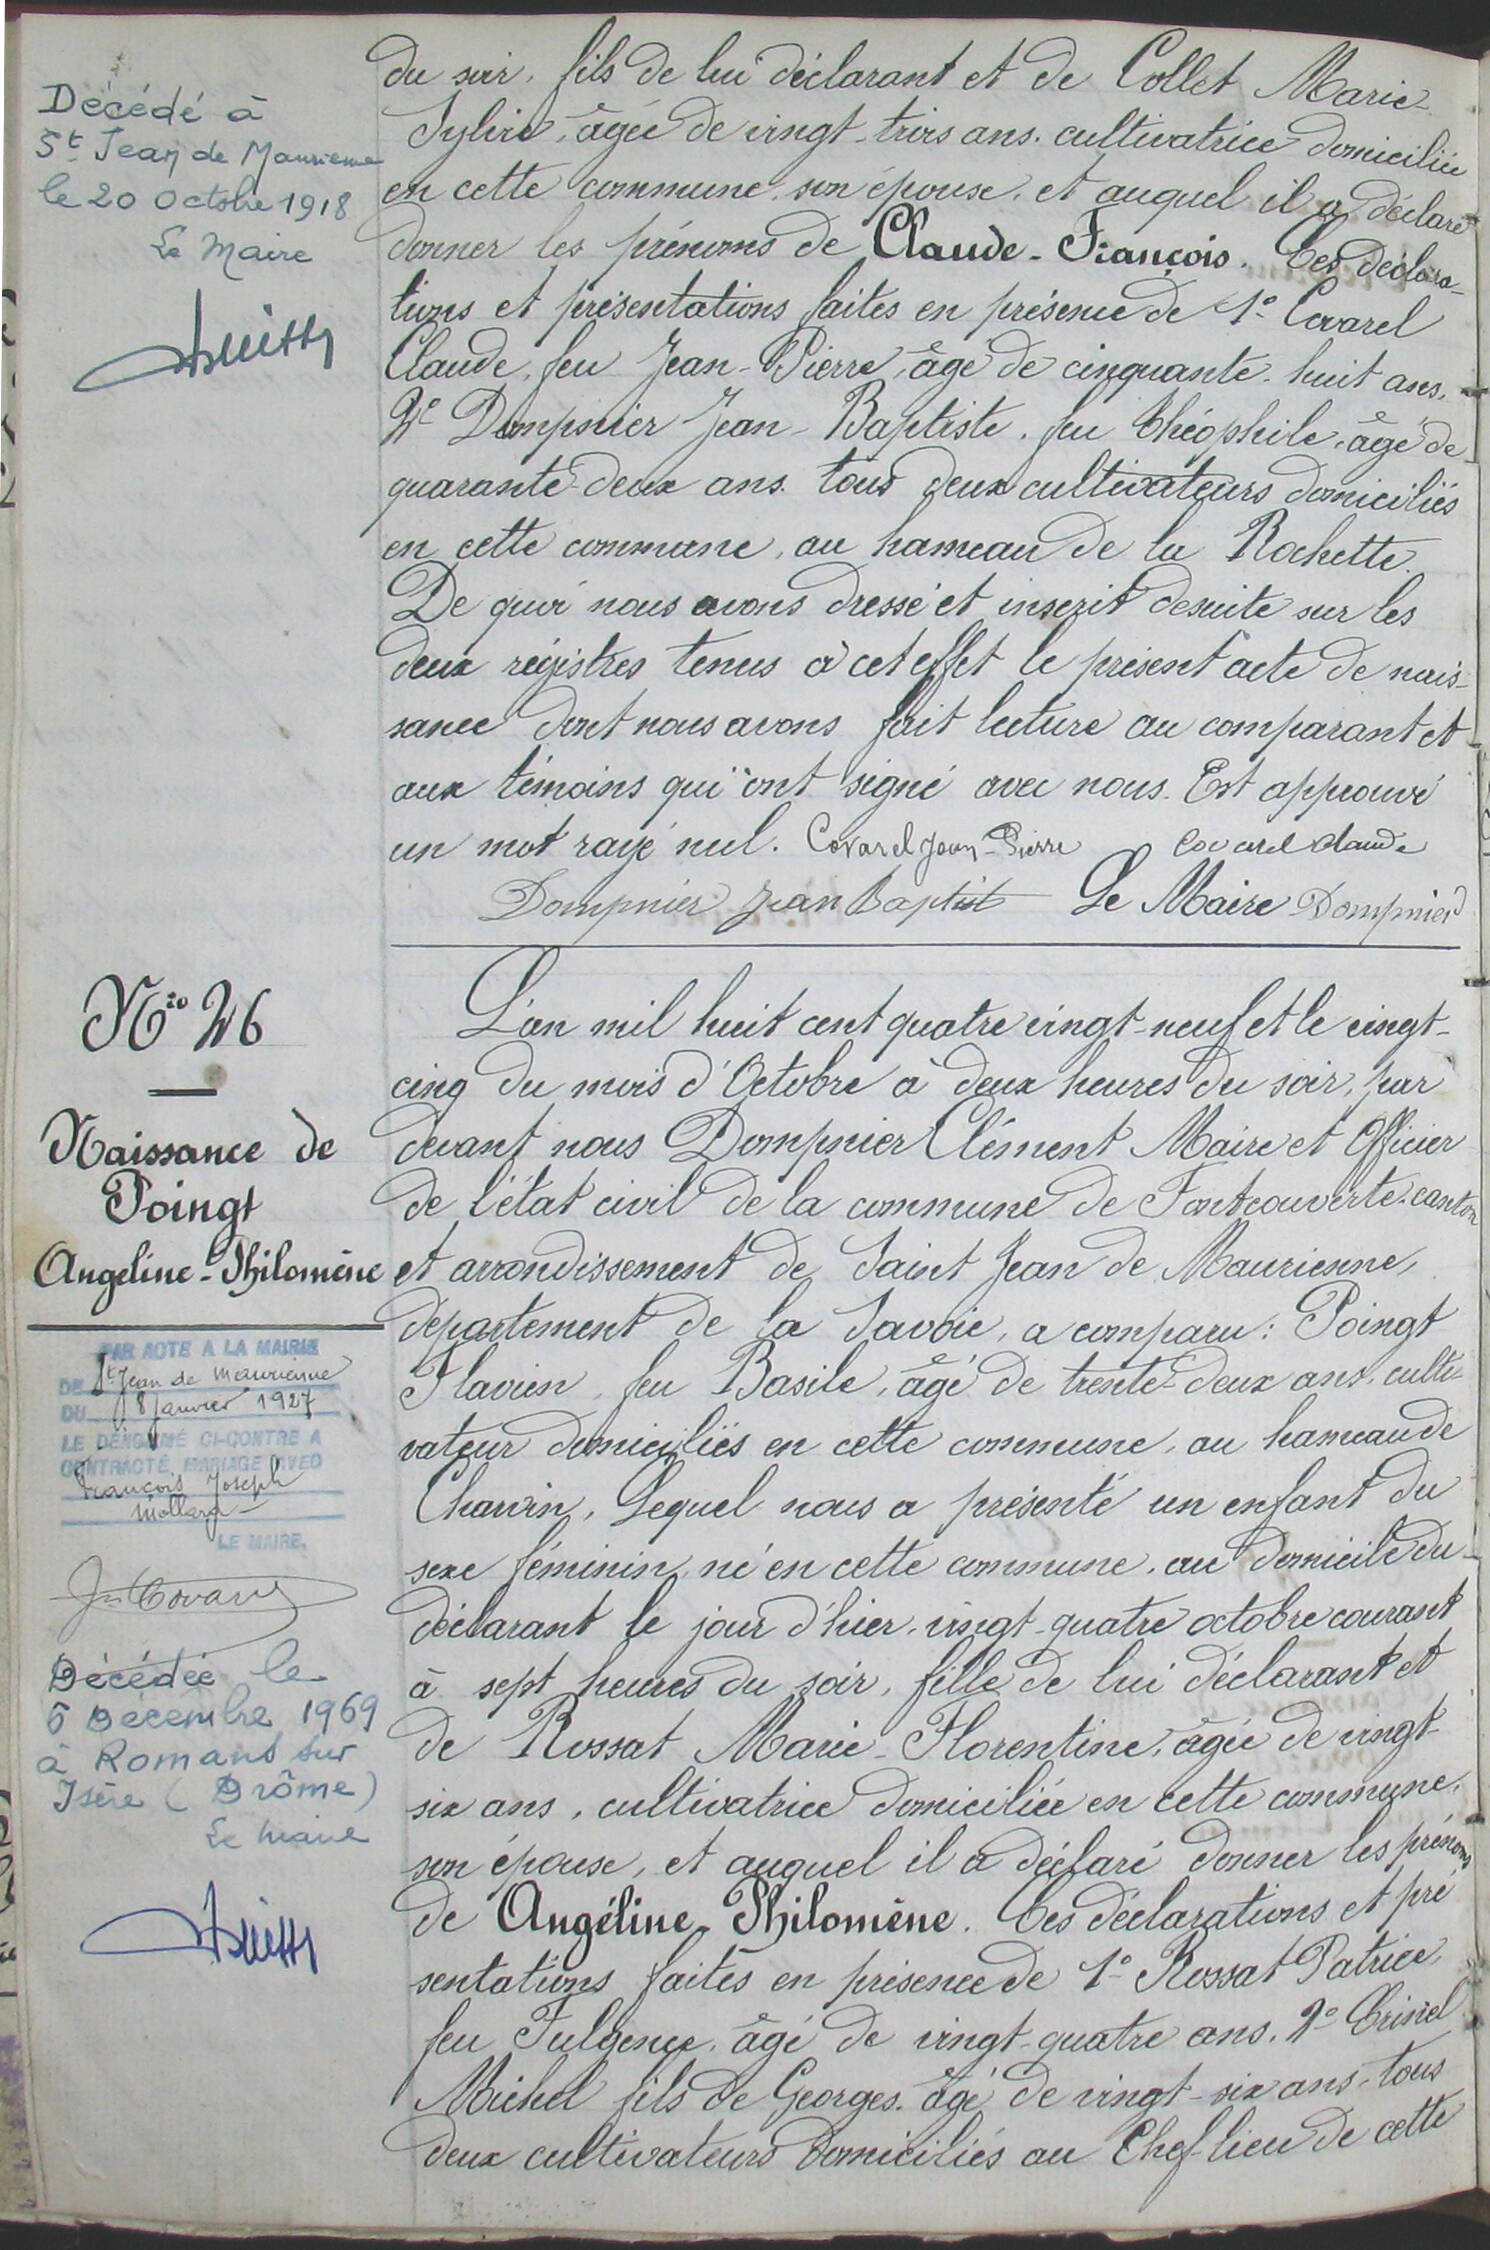 Décédé à
St Jean de Maurienne
le 20 Octobre 1918
Le Maire
du soir, fils de lui déclarant et de Collet Marie
Sylvie, âgée de vingt-trois ans, cultivatrice domiciliée
en cette commune, son épouse, et auquel il a déclaré
donner les prénoms de Claude-François. Ces déclara-
tions et présentations faites en présence de 1° Covarel
Claude, feu Jean-Pierre, âgé de cinquante-huit ans,
2° Dompnier Jean-Baptiste, feu Théophile, âgé de
quarante-deux ans, tous deux cultivateurs domiciliés
en cette commune, au hameau de la Rochette.
De quoi nous avons dressé et inscrit desuite sur les
deux régistres tenus à cet effet le présent acte de nais-
sance dont nous avons fait lecture au comparant et
aux témoins qui ont signé avec nous. Est approuvé
un mot rayé nul. Covarel Jean-Pierre Covarel Claude
Dompnier Jean Baptist Le Maire Dompnier
No 26
Naissance de
Poingt
Angeline-Philomène
PAR ACTE A LA MAIRIE
DE St Jean de Maurienne
DU 8 Janvier 1927
LE DÉNOMMÉ CI-CONTRE A
CONTRACTÉ MARIAGE AVEC
François Joseph
Mollard
LE MAIRE,
Décédée le
6 Décembre 1969
à Romans sur
Isère (Drôme)
Le maire
L'an mil huit cent quatre vingt-neuf et le vingt-
cinq du mois d'Octobre à deux heures du soir, par
devant nous Dompnier Clément Maire et Officier
de l'état civil de la commune de Fontcouverte, canton
et arrondissement de Saint Jean de Maurienne,
département de la Savoie, a comparu: Poingt
Flavien, feu Basile, âgé de trente-deux ans, culti-
vateur domiciliés en cette commune, au hameau de
Charvin, Lequel nous a présenté un enfant du
sexe féminin, né en cette commune, au domicile du
déclarant le jour d'hier, vingt-quatre octobre courant
à sept heures du soir, fille de lui déclarant et
de Rossat Marie-Florentine, âgée de vingt-
six ans, cultivatrice domiciliée en cette commune,
son épouse, et auquel il a déclaré donner les prénoms
de Angéline-Philomène. Ces déclarations et pré
sentations faites en présence de 1° Rossat Patrice,
feu Fulgence, âgé de vingt-quatre ans, 2°
Michel fils de Georges, âgé de vingt-six ans, tous
deux cultivateurs domiciliés au Chef-lieu de cette